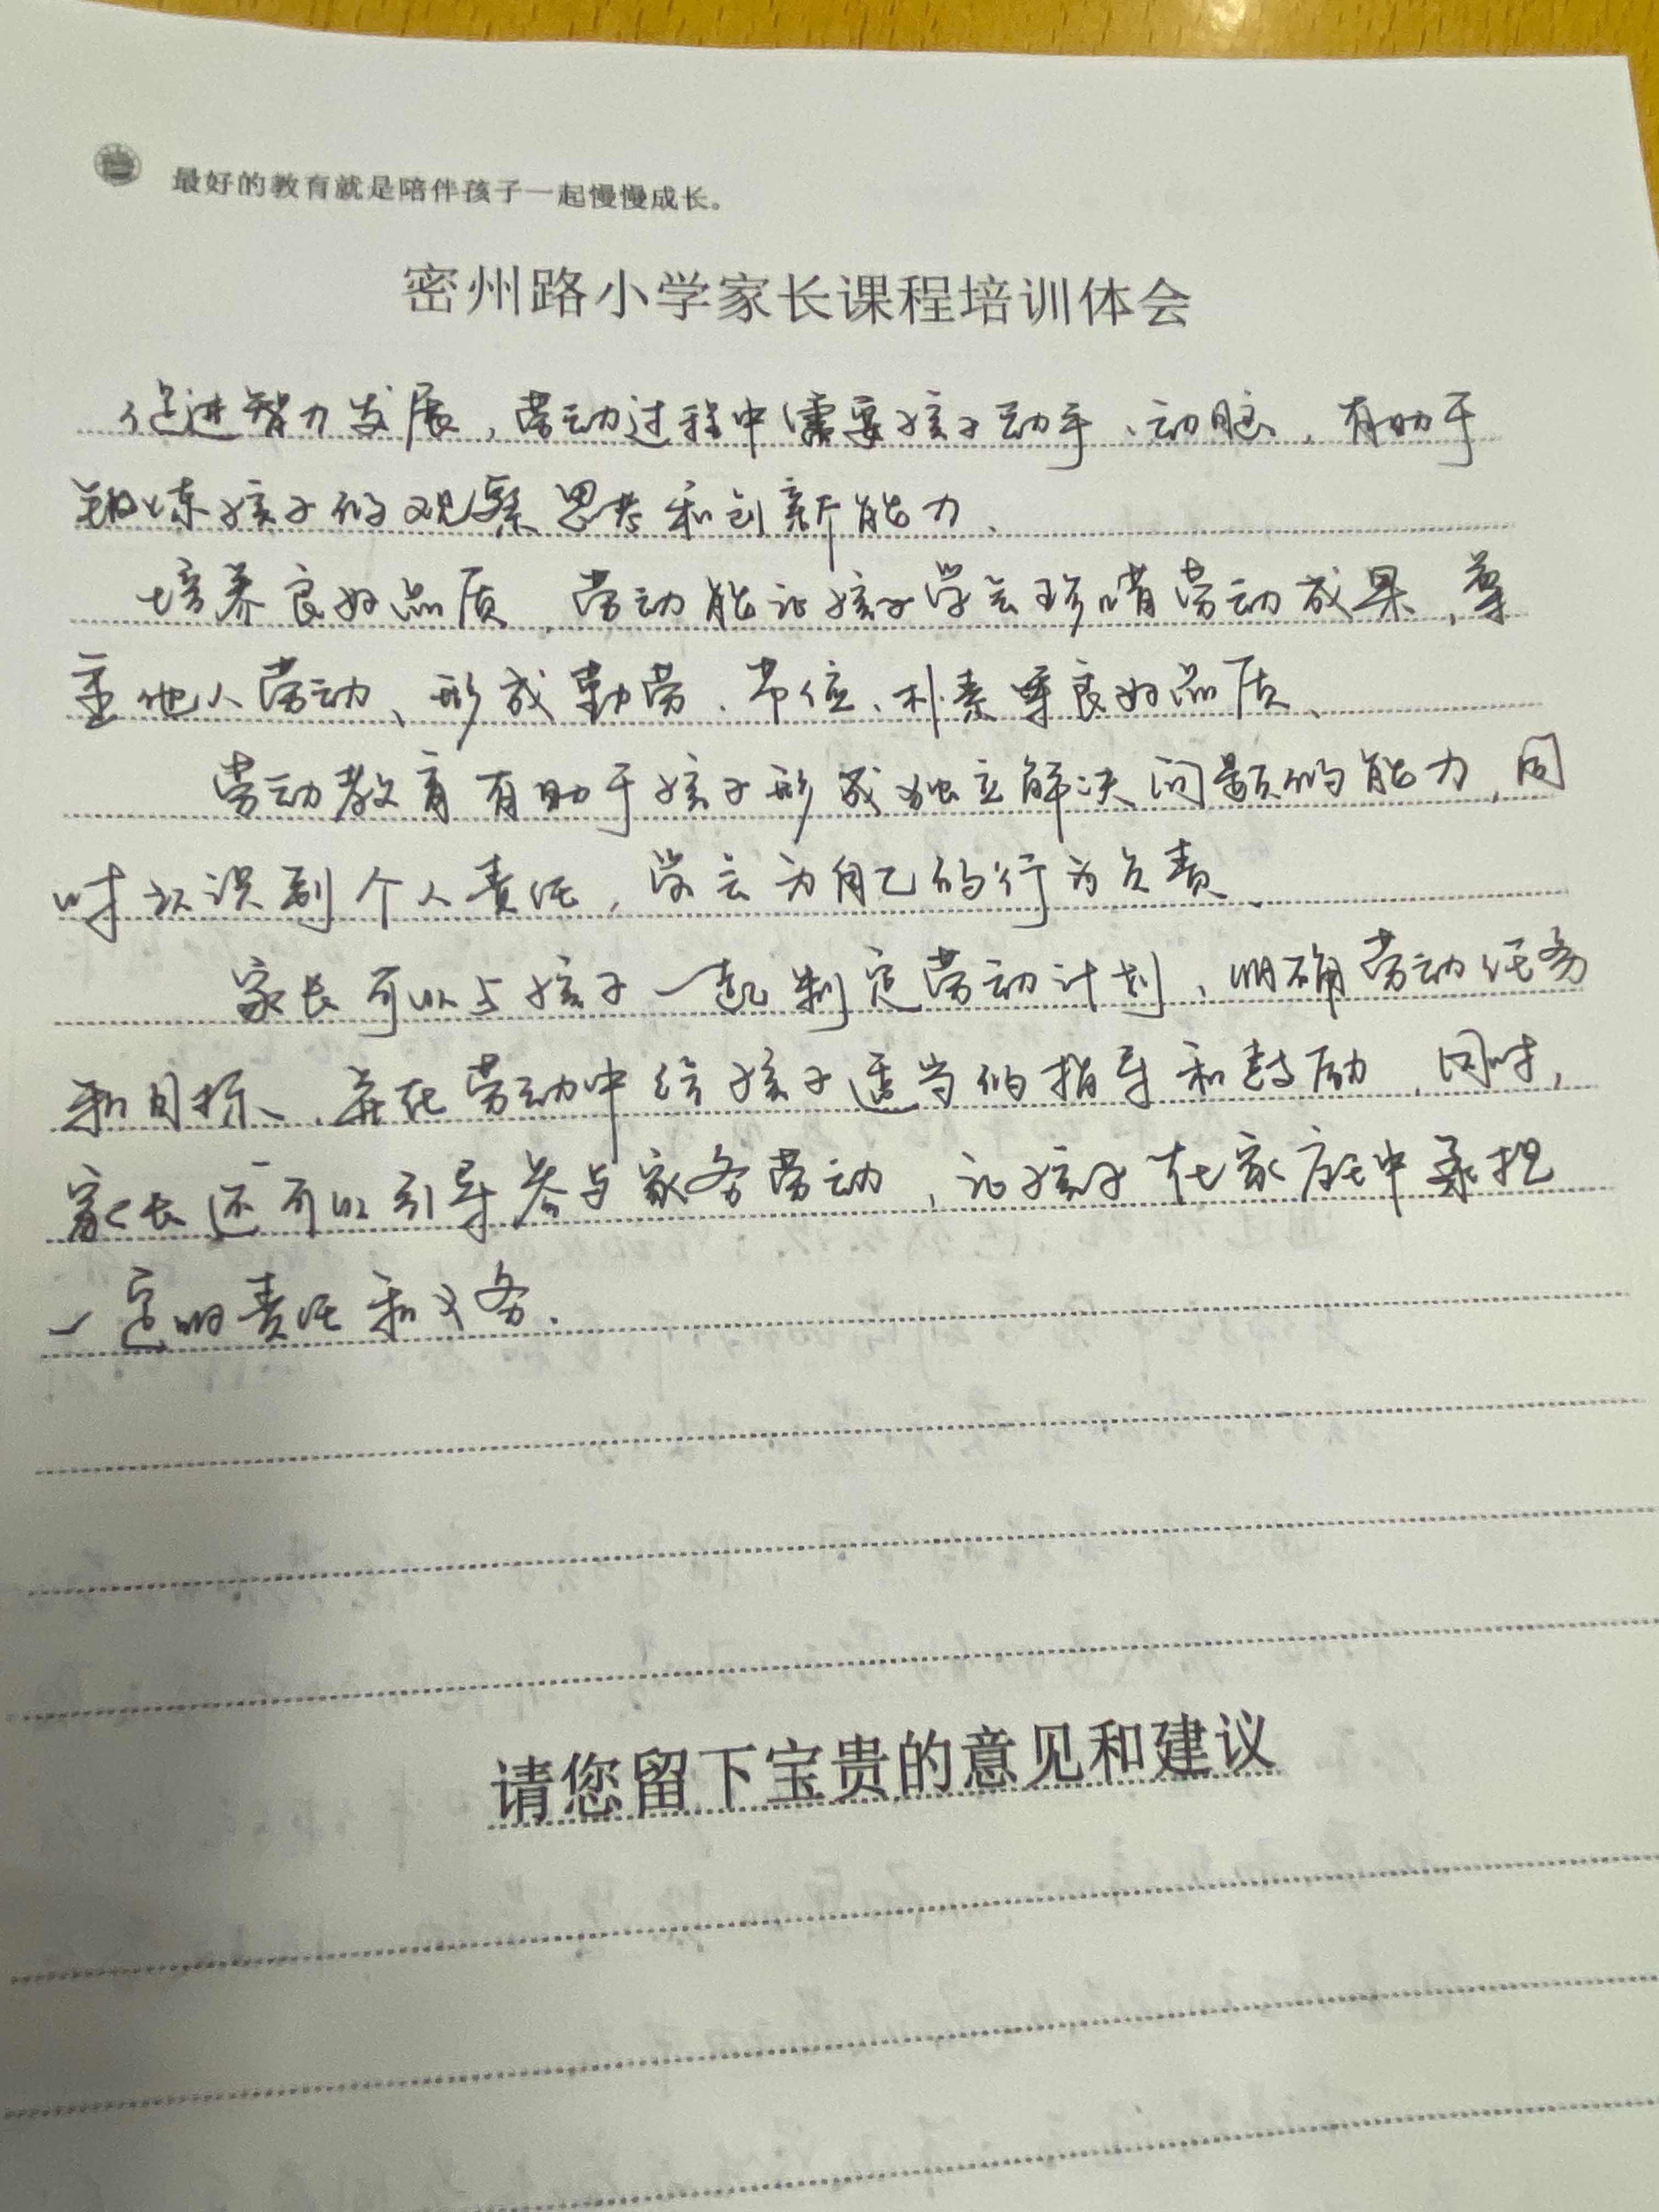 最好的教育就是陪伴孩子一起慢慢成长。
密州路小学家长课程培训体会
促进智力发展,劳动过程中需要孩子动手、动脑,有助于
锻炼孩子的观察思考和创新能力、
培养良好品质,劳动能让孩子学会珍惜劳动成果,尊
重他人劳动、形成勤劳、节俭、朴素等良好品质、
劳动教育有助于孩子形成独立解决问题的能力,同
时认识到个人责任,学会为自己的行为负责、
家长可以与孩子一起制定劳动计划、明确劳动任务
和目标、并在劳动中给孩子适当的指导和鼓励,同时,
家长还可以引导参与家务劳动,让孩子在家庭中承担
一定的责任和义务.
请您留下宝贵的意见和建议